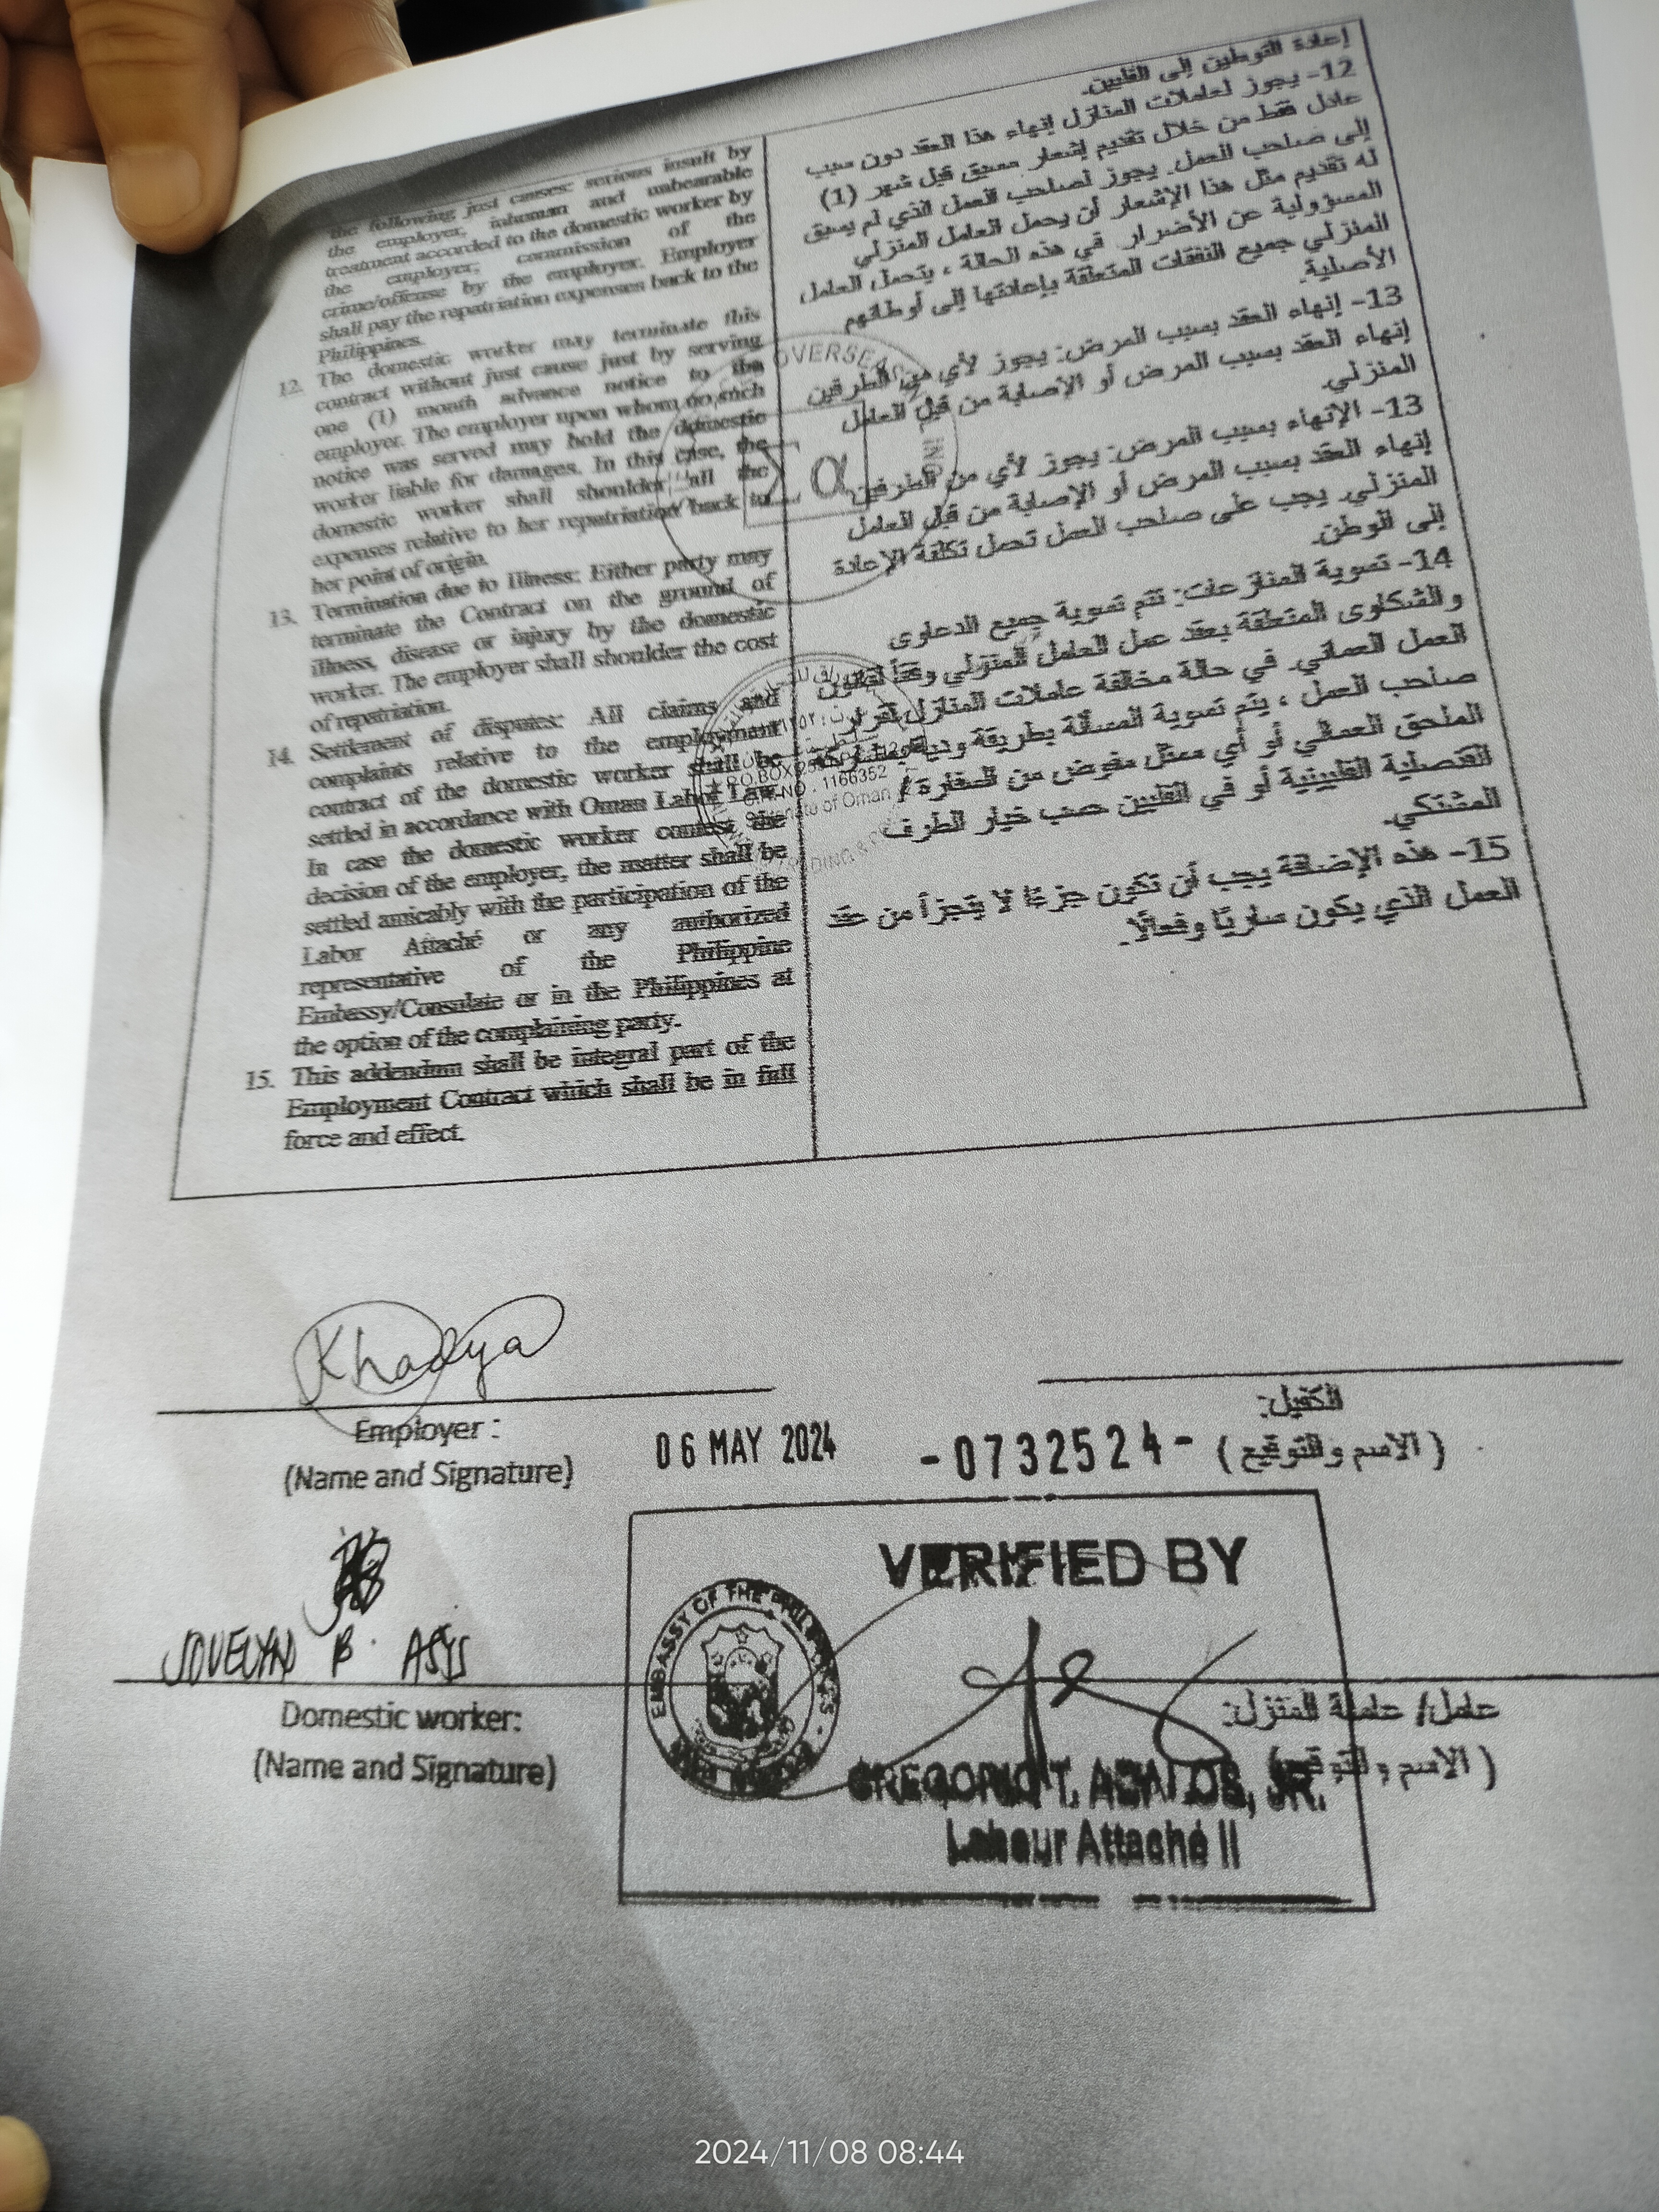 the following just causes: serious insult by
the employer, inhuman and unbearable
treatment accorded to the domestic worker by
the employer, commission of the
crime/offense by the employer. Employer
shall pay the repatriation expenses back to the
Philippines.
12. The domestic worker may terminate this
contract without just cause just by serving
one (1) month advance notice to the
employer. The employer upon whom no such
notice was served may hold the domestic
worker liable for damages. In this case, the
domestic worker shall shoulder all the
expenses relative to her repatriation back to
her point of origin.
13. Termination due to Illness: Either party may
terminate the Contract on the ground of
illness, disease or injury by the domestic
worker. The employer shall shoulder the cost
of repatriation.
14. Settlement of disputes: All claims and
complaints relative to the employment
contract of the domestic worker shall be
settled in accordance with Oman Labor Law.
In case the domestic worker contest the
decision of the employer, the matter shall be
settled amicably with the participation of the
Labor Attaché or any authorized
representative of the Philippine
Embassy/Consulate or in the Philippines at
the option of the complaining party.
15. This addendum shall be integral part of the
Employment Contract which shall be in full
force and effect.
إعادة التوطين إلى الفلبين.
12- يجوز لعاملات المنازل إنهاء هذا العقد دون سبب
عادل فقط من خلال تقديم إشعار مسبق قبل شهر (1)
إلى صاحب العمل. يجوز لصاحب العمل الذي لم يسبق
له تقديم مثل هذا الإشعار أن يحمل العامل المنزلي
المسؤولية عن الأضرار. في هذه الحالة ، يتحمل العامل
المنزلي جميع النفقات المتعلقة بإعادتها إلى أوطانهم
الأصلية.
13- إنهاء العقد بسبب المرض: يجوز لأي من الطرفين
إنهاء العقد بسبب المرض أو الإصابة من قبل العامل
المنزلي.
13- الإنهاء بسبب المرض: يجوز لأي من الطرفين
إنهاء العقد بسبب المرض أو الإصابة من قبل العامل
المنزلي. يجب على صاحب العمل تحمل تكلفة الإعادة
إلى الوطن.
14- تسوية المنازعات: تتم تسوية جميع الدعاوى
والشكاوى المتعلقة بعقد عمل العامل المنزلي وفقًا لقانون
العمل العماني. في حالة مخالفة عاملات المنازل لقرار
صاحب العمل ، يتم تسوية المسألة بطريقة ودية بمشاركة
الملحق العمالي أو أي ممثل مفوض من السفارة /
القنصلية الفلبينية أو في الفلبين حسب خيار الطرف
المشتكي.
15- هذه الإضافة يجب أن تكون جزءًا لا يتجزأ من عقد
العمل الذي يكون ساريًا وفعالًا.
OVERSEA
P.O.BOX
1166352
of Oman
Khadya
Employer :
(Name and Signature)
06 MAY 2024
-0732524-
الكفيل:
( الاسم والتوقيع )
VERIFIED BY
EMBASSY OF THE PHILIPPINES
JOVELYN B. ASIS
Domestic worker:
(Name and Signature)
عامل/ عاملة المنزل:
( الاسم والتوقيع )
GREGORIO T. ABALOS, JR.
Labour Attaché II
2024/11/08 08:44